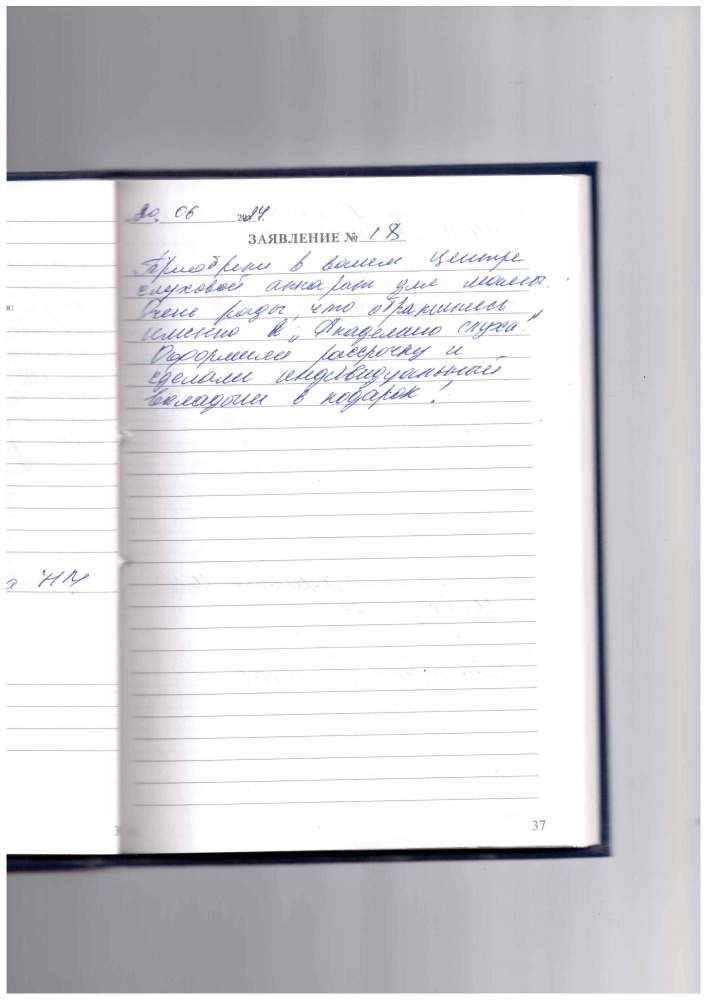 20. 06 2024г.
ЗАЯВЛЕНИЕ № 18
Приобрели в вашем центре
слуховой аппарат для мамы.
Очень рады, что обратились
именно в „Академию слуха".
Оформили рассрочку и
сделали индивидуальный
вкладыш в подарок!
а НМ
37